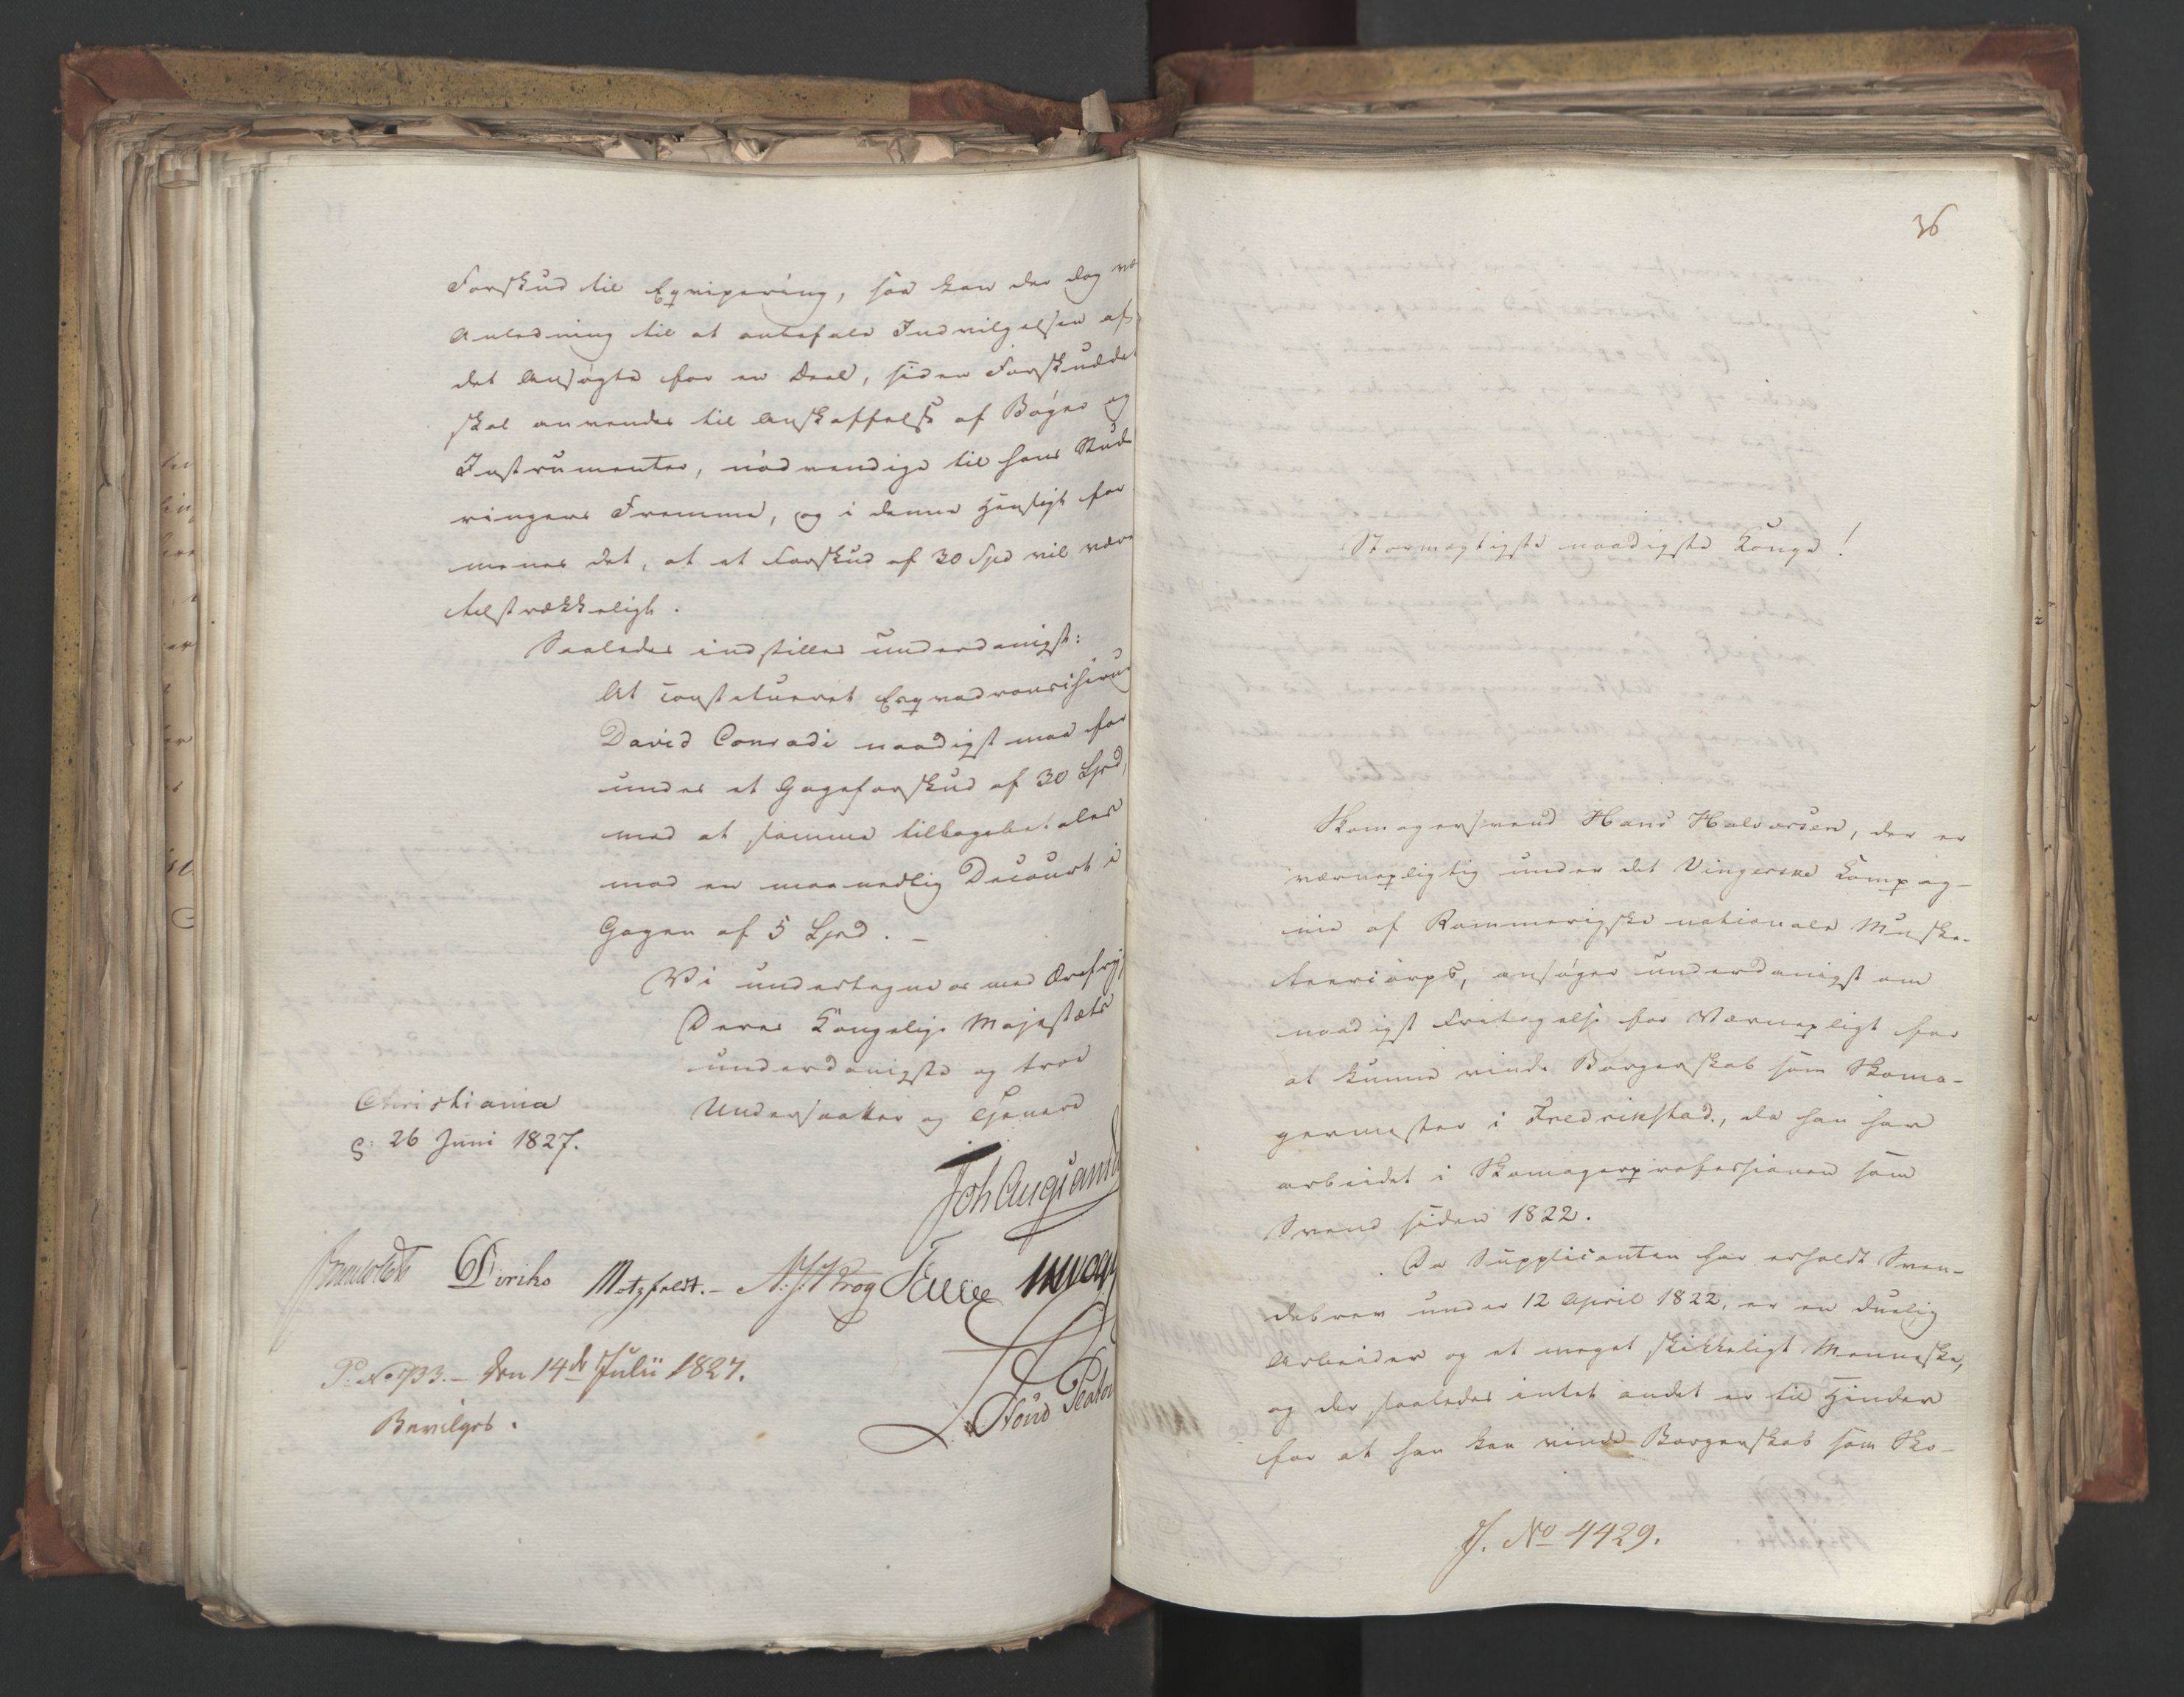 Forskud til Eqvipering, saa kan der dog være
Anledning til at anbefale Indvilgelsen af
det Ansøgte for en Deel, siden Forskuddet
skal anvendes til Anskaffelse af Bøger og
Instrumenter, nødvendige til hans Stude
ringers Fremme, og i denne Hensigt for
menes det, at et Forskud af 30 Spd vil være
tilstrækkeligt.
Saaledes indstilles underdanigst:
At constitueret Esqvadronschirurg
David Conradi naadigst maa for
undes et Gageforskud af 30 Spd,
mod at samme tilbagebetales
med en maanedlig Decourt i
Gagen af 5 Spd. –
Vi undertegne os med Ærefrygt
Deres Kongelige Majestæts
underdanigste og troe
Undersaatter og Tjenere
Christiania
d: 26 Juni 1827.
Diriks Motzfeldt. – Krog Fasting
P. No 733. – den 14de Julii 1827.
Bevilges.
36
Stormægtigste naadigste Konge!
Skomagersvend Hans Halvorsen, der er
værnepligtig under det Vingerske Kompag-
nie af Rommerigske nationale Muske-
teercorps, ansøger underdanigst om
naadigst Fritagelse for Værnepligt for
at kunne vinde Borgerskab som Skoma-
germester i Fredrikstad, da han har
arbeidet i Skomagerprofessionen som
Svend siden 1822.
Da Supplicanten har erholdt Sven-
debrev under 12 April 1822, er en duelig
Arbeider og et meget skikkeligt Menneske,
og der saaledes intet andet er til Hinder
for at han kan vinde Borgerskab som Sko-
J. No 4429.